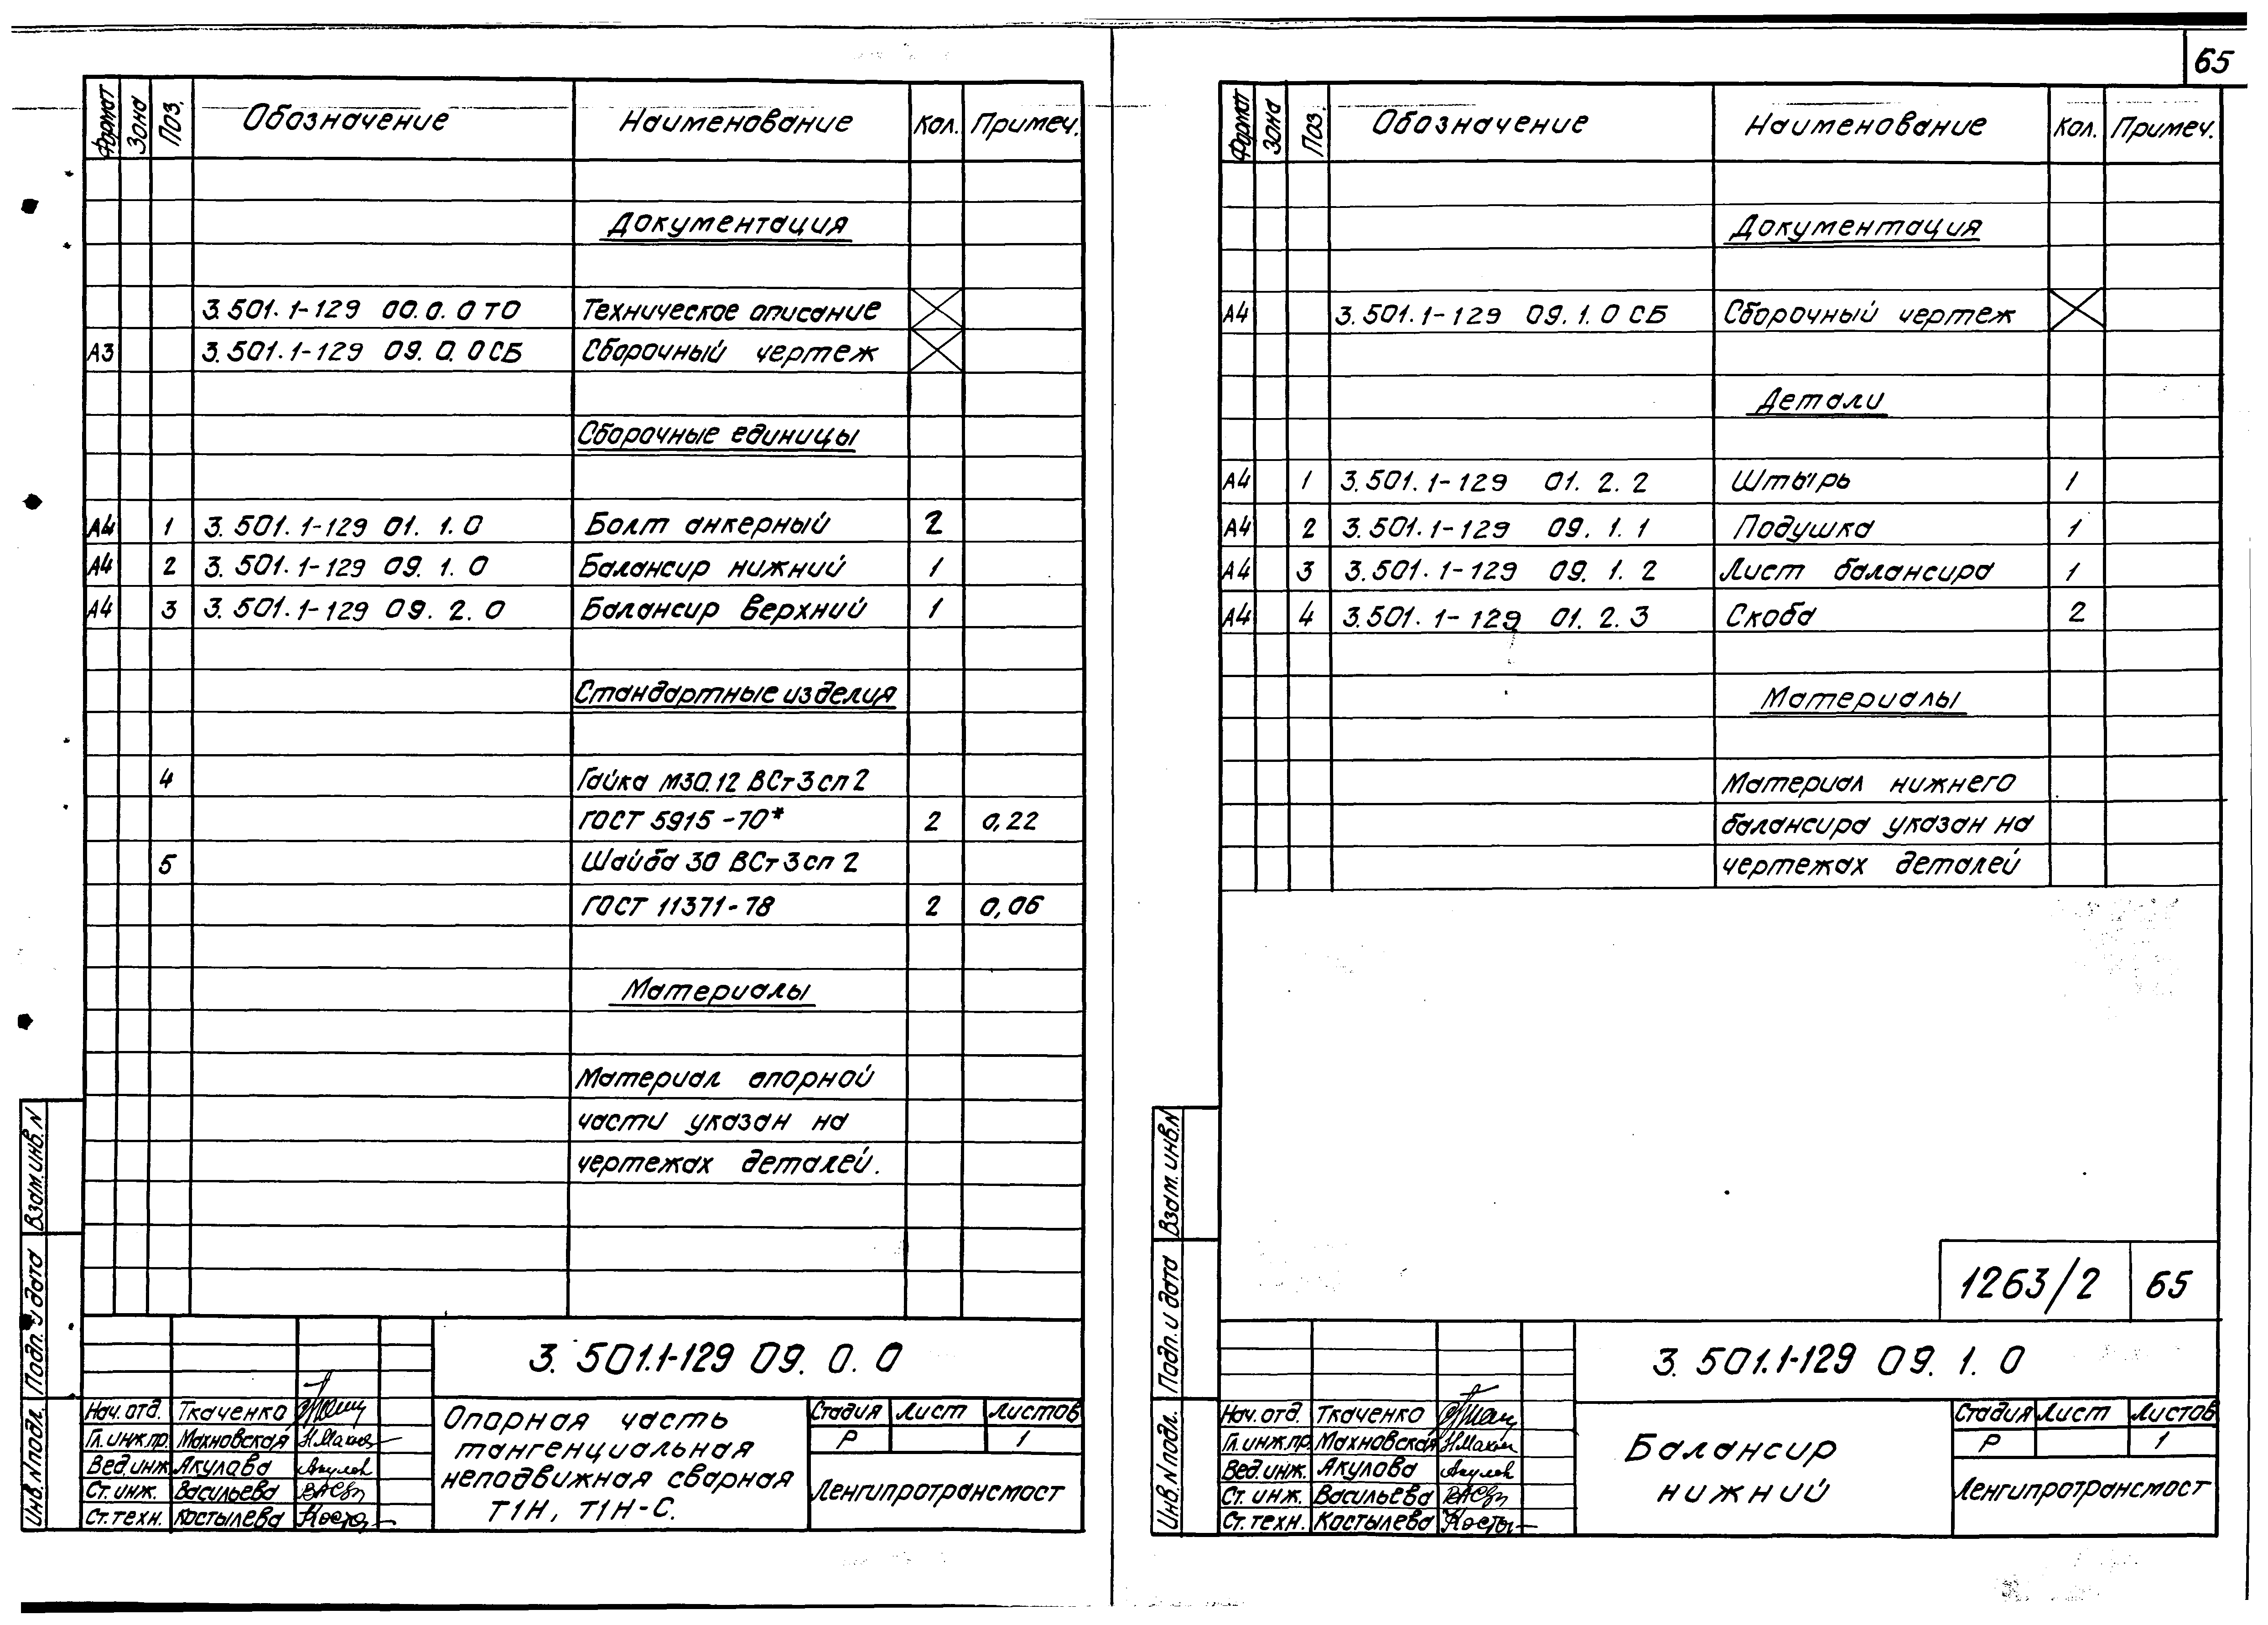 65
Формат Зона Поз. Обозначение Наименование Кол. Примеч.
Документация
3.501.1-129 00.0.0 ТО Техническое описание
А3 3.501.1-129 09.0.0 СБ Сборочный чертеж
Сборочные единицы
А4 1 3.501.1-129 01.1.0 Болт анкерный 2
А4 2 3.501.1-129 09.1.0 Балансир нижний 1
А4 3 3.501.1-129 09.2.0 Балансир верхний 1
Стандартные изделия
4 Гайка М30.12 ВСт3сп2
ГОСТ 5915-70* 2 0,22
5 Шайба 30 ВСт3сп2
ГОСТ 11371-78 2 0,06
Материалы
Материал опорной
части указан на
чертежах деталей.
Взам. инв. N
Подп. и дата
Инв. N подл.
3.501.1-129 09.0.0
Нач. отд. Ткаченко
Гл. инж. пр. Махновская
Вед. инж. Акулова
Ст. инж. Васильева
Ст. техн. Костылева
Опорная часть
тангенциальная
неподвижная сварная
Т1Н, Т1Н-С.
Стадия Лист Листов
Р 1
Ленгипротрансмост
Формат Зона Поз. Обозначение Наименование Кол. Примеч.
Документация
А4 3.501.1-129 09.1.0 СБ Сборочный чертеж
Детали
А4 1 3.501.1-129 01.2.2 Штырь 1
А4 2 3.501.1-129 09.1.1 Подушка 1
А4 3 3.501.1-129 09.1.2 Лист балансира 1
А4 4 3.501.1-129 01.2.3 Скоба 2
Материалы
Материал нижнего
балансира указан на
чертежах деталей
Взам. инв. N
Подп. и дата
Инв. N подл.
1263/2 65
3.501.1-129 09.1.0
Нач. отд. Ткаченко
Гл. инж. пр. Махновская
Вед. инж. Акулова
Ст. инж. Васильева
Ст. техн. Костылева
Балансир
нижний
Стадия Лист Листов
Р 1
Ленгипротрансмост